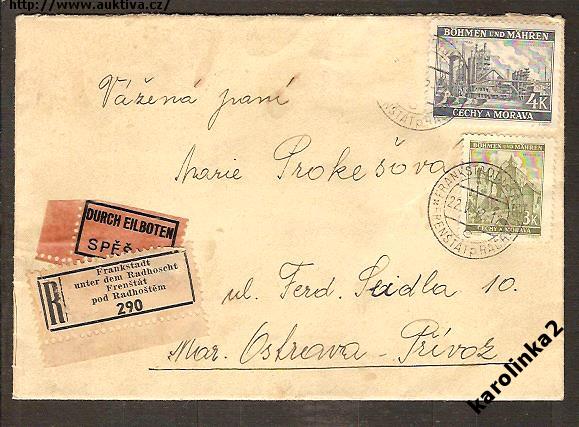 http://www.auktiva.cz/
BÖHMEN UND MÄHREN
4K
ČECHY A MORAVA
BÖHMEN UND MÄHREN
3K
ČECHY A MORAVA
Vážená paní
Marie Prokešova
ul. Ferd. Seidla 10.
Mor. Ostrava - Přívoz
DURCH EILBOTEN
SPĚŠ
R
Frankstadt
unter dem Radhoscht
Frenštát
pod Radhoštěm
290
karolinka2